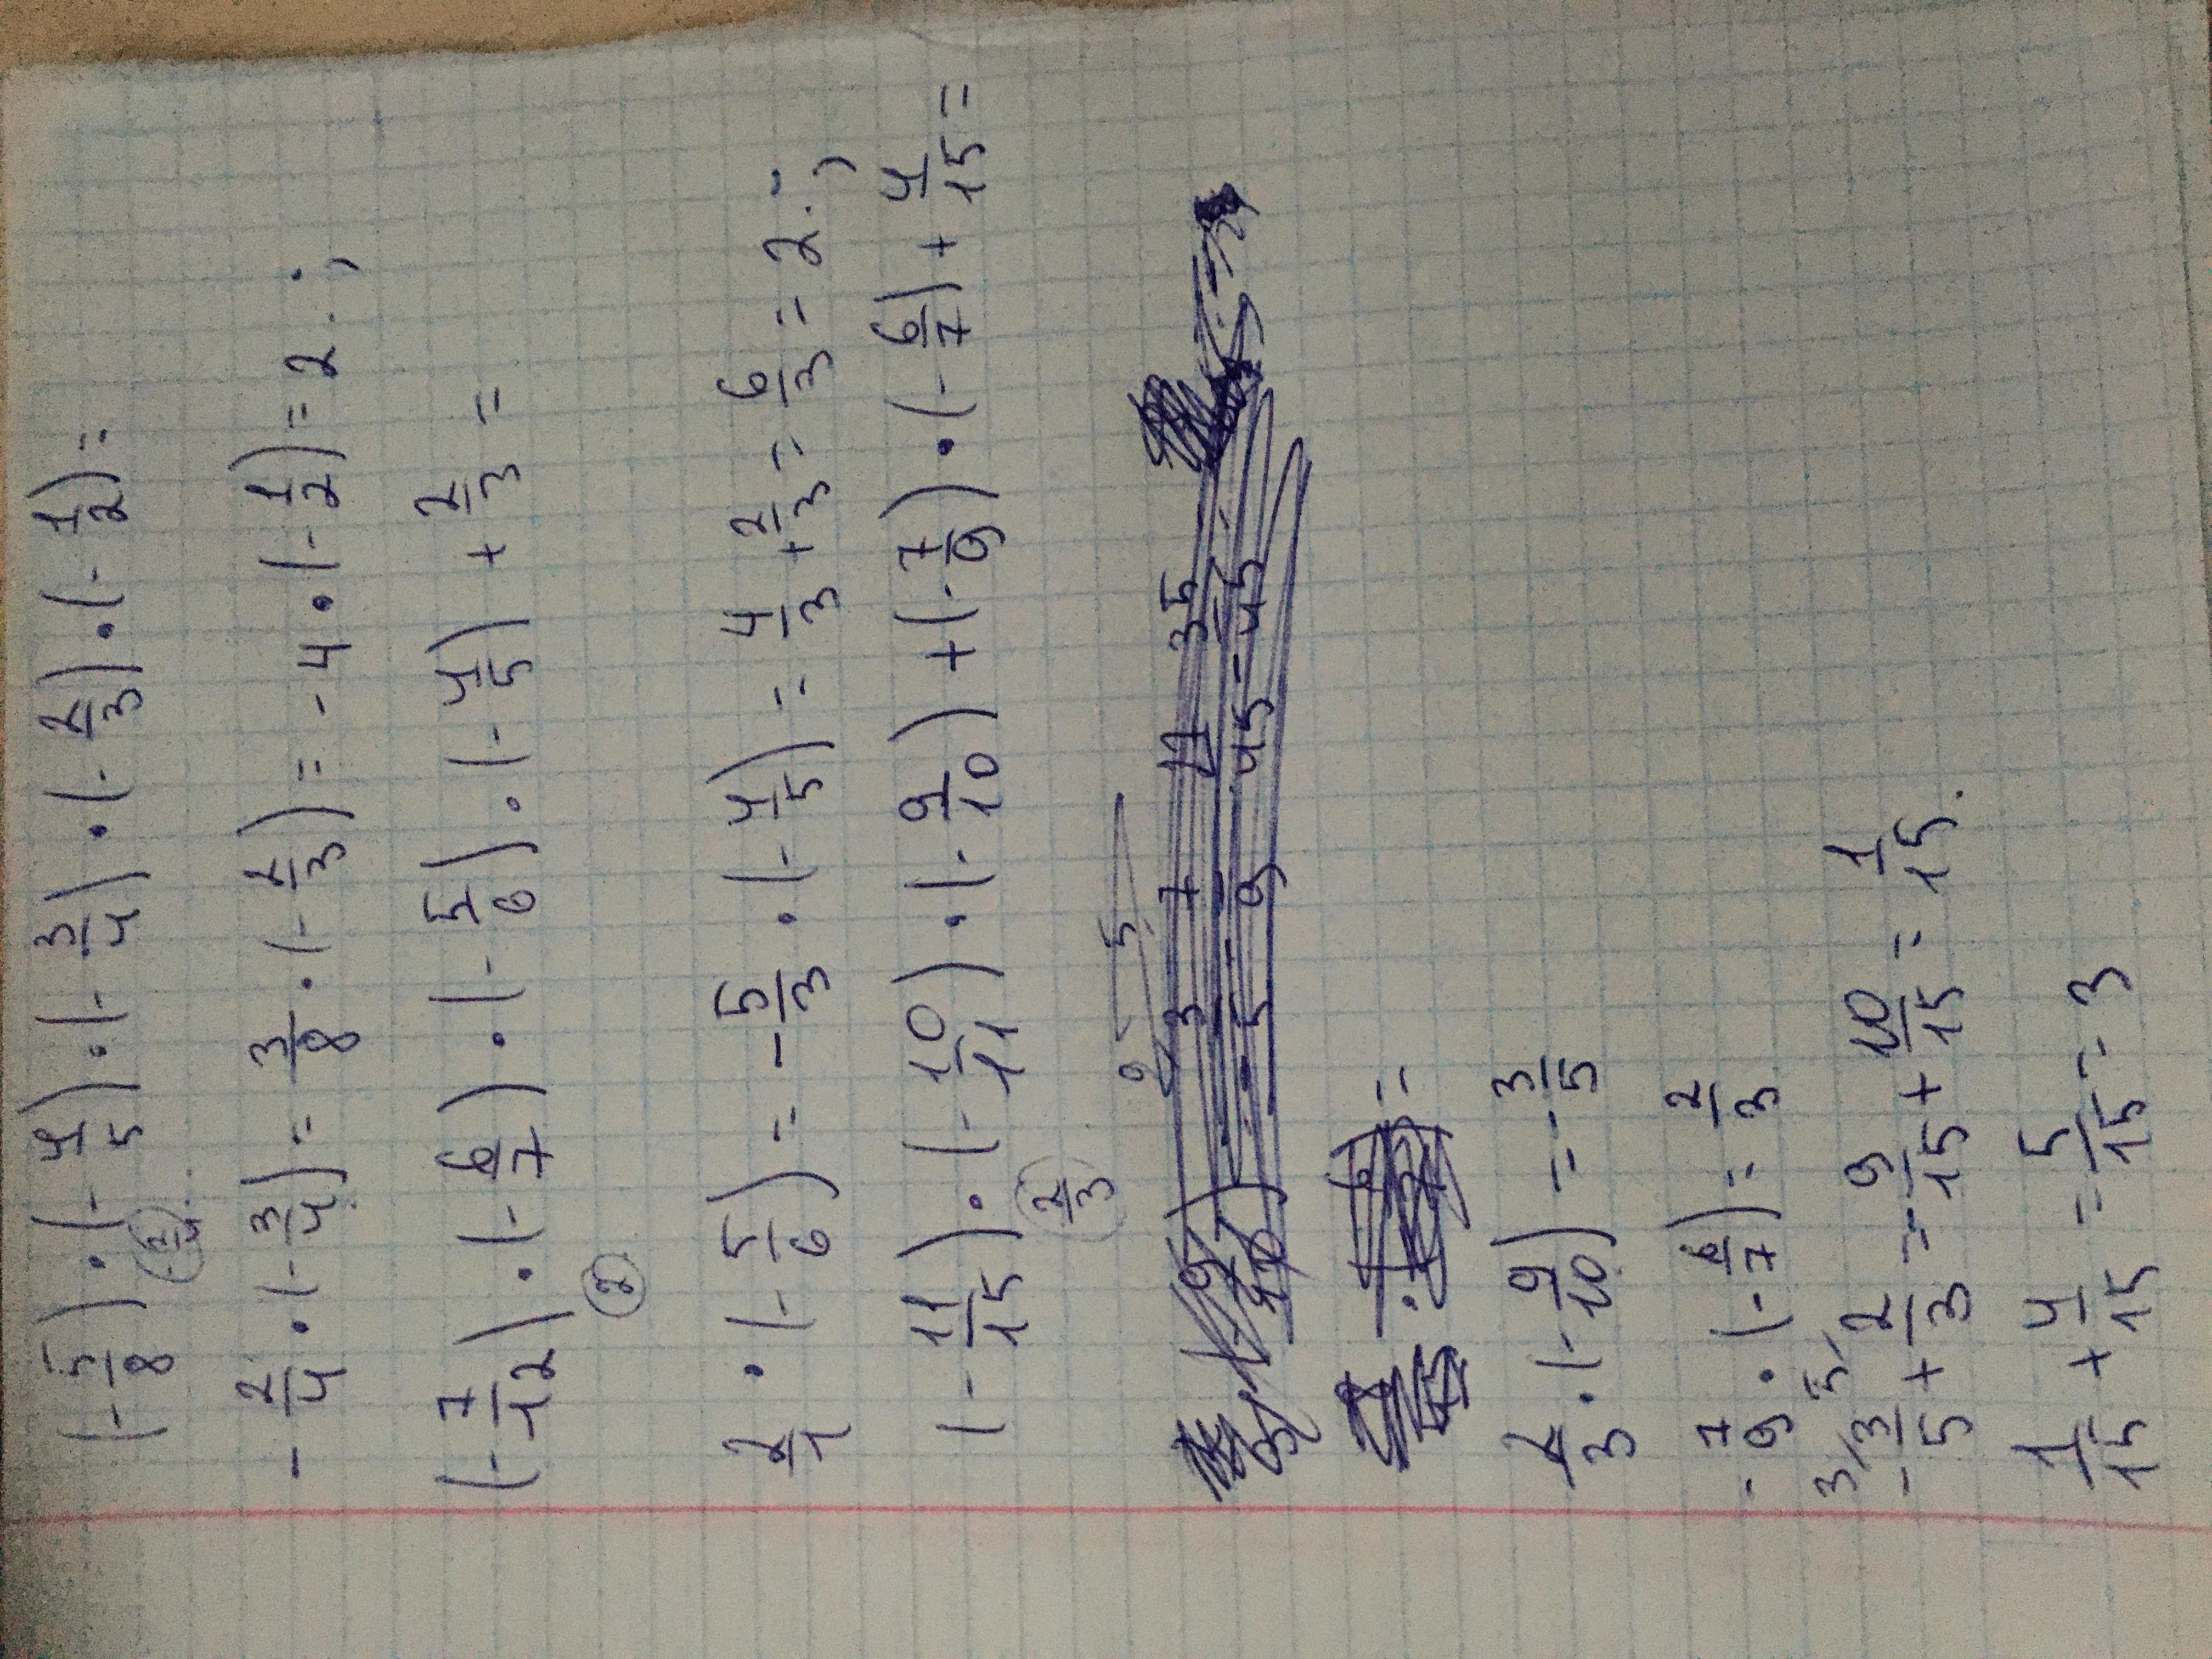 (-5/8)·(-4/5)·(-3/4)·(-2/3)·(-1/2)=
-2/4·(-3/4)=3/8·(-2/3)=-4·(-1/2)=2.;
(-7/12)·(-6/7)·(-5/6)·(-4/5)+2/3=
(2)
2/1·(-5/6)=-5/3·(-4/5)=4/3+2/3=6/3=2.;
(-11/15)·(-10/11)·(-9/10)+(-7/9)·(-6/7)+4/15=
(2/3)
2/3·(-9/10)=-3/5
-7/9·(-6/7)=2/3
3/ 5/
-3/5+2/3=-9/15+10/15=1/15.
1/15+4/15=5/15=3